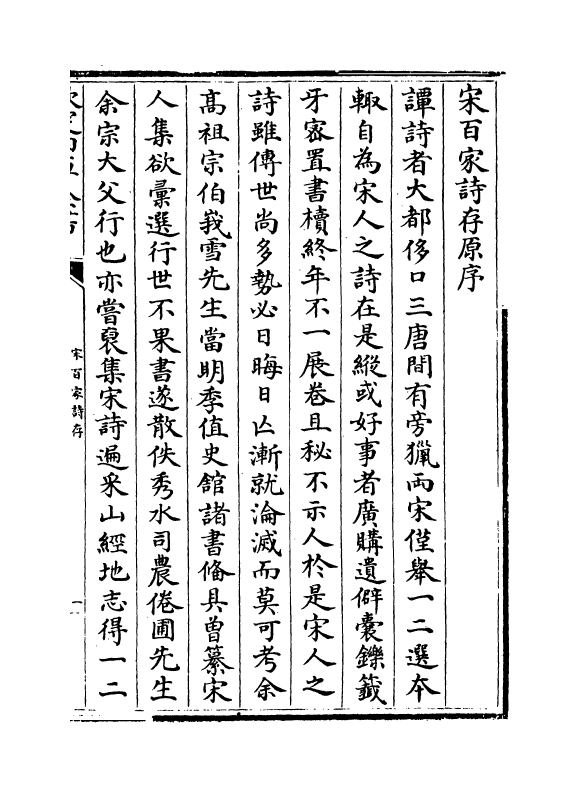 宋百家詩存原序
譚詩者大都侈口三唐間有旁獵兩宋僅舉一二選本
輙自為宋人之詩在是縱或好事者廣購遺僻囊鑠籖
牙宻置書櫝終年不一展卷且秘不示人於是宋人之
詩雖傳世尚多勢必日晦日亾漸就淪滅而莫可考余
髙祖宗伯峩雪先生當明季值史舘諸書俻具曾纂宋
人集欲彚選行世不果書遂散佚秀水司農倦圃先生
余宗大父行也亦嘗裒集宋詩遍采山經地志得一二
宋百家詩存
一